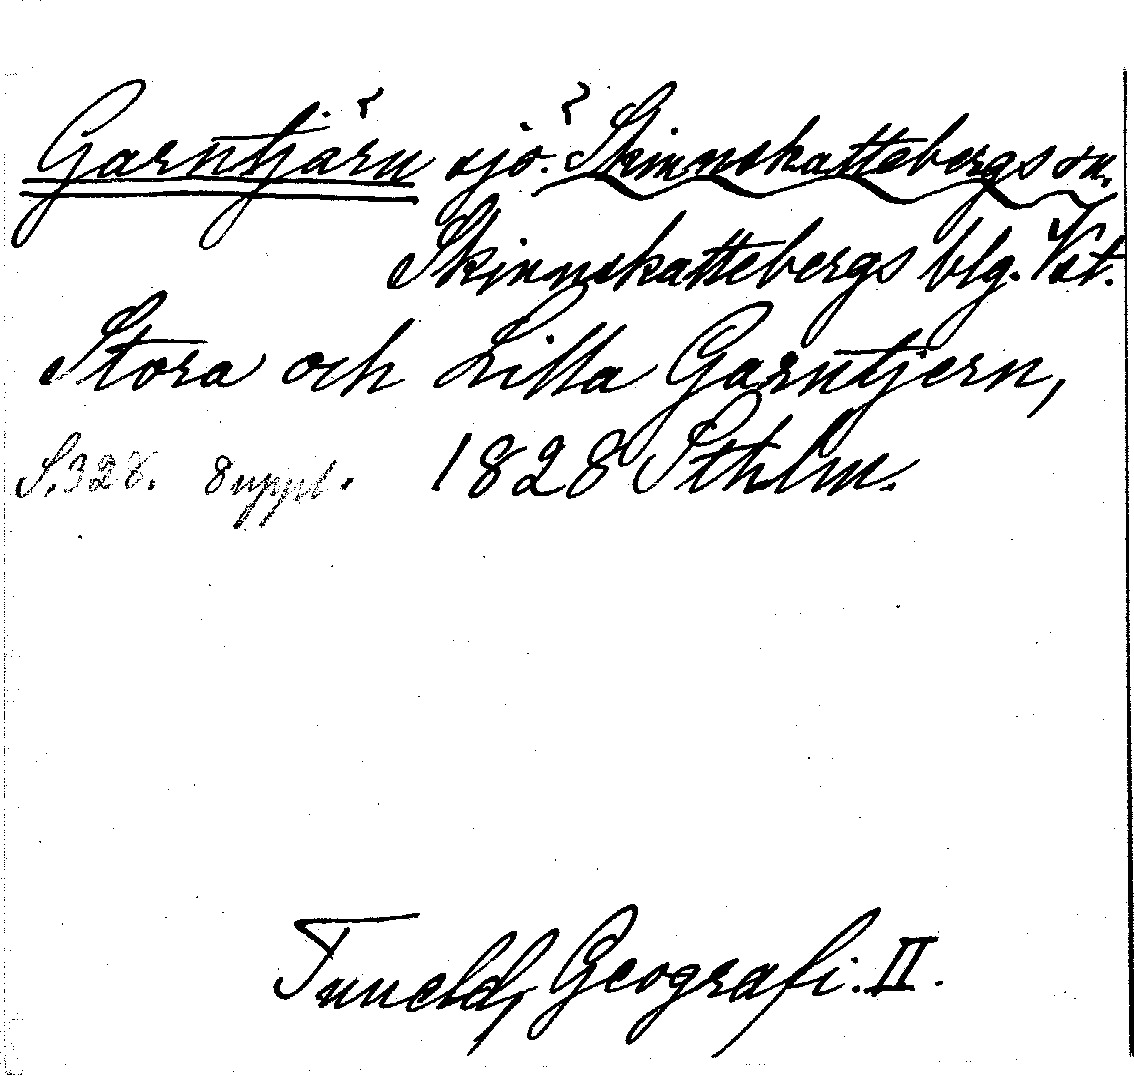 Garntjärn sjö. Skinnskattebergs sn.
Skinnskattebergs blg. Vst.
Stora och Lilla Garntjern,
S. 328. 8 uppl. 1828 Sthlm.
Tuneld, Geografi. II.